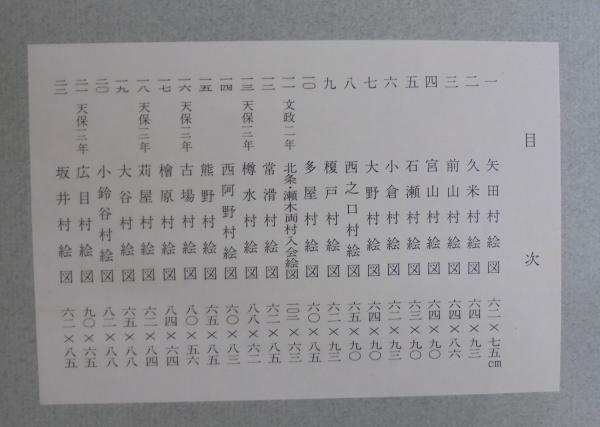 目次
一 矢田村絵図 六二×七五cm
二 久米村絵図 六四×九三
三 前山村絵図 六四×八六
四 宮山村絵図 六四×九〇
五 石瀬村絵図 六三×九〇
六 小倉村絵図 六二×九三
七 大野村絵図 六四×九〇
八 西之口村絵図 六五×九〇
九 榎戸村絵図 六二×九三
一〇 多屋村絵図 六〇×八五
一一 文政二年 北条・瀬木両村入会絵図 一〇三×六三
一二 常滑村絵図 六二×八五
一三 天保三年 樽水村絵図 八八×六二
一四 西阿野村絵図 六〇×八三
一五 熊野村絵図 六五×八五
一六 天保三年 古場村絵図 八〇×五六
一七 檜原村絵図 八四×六四
一八 天保三年 苅屋村絵図 六二×八四
一九 大谷村絵図 六五×八八
二〇 小鈴谷村絵図 六二×八八
二一 天保三年 広目村絵図 九〇×六五
二二 坂井村絵図 六二×八五